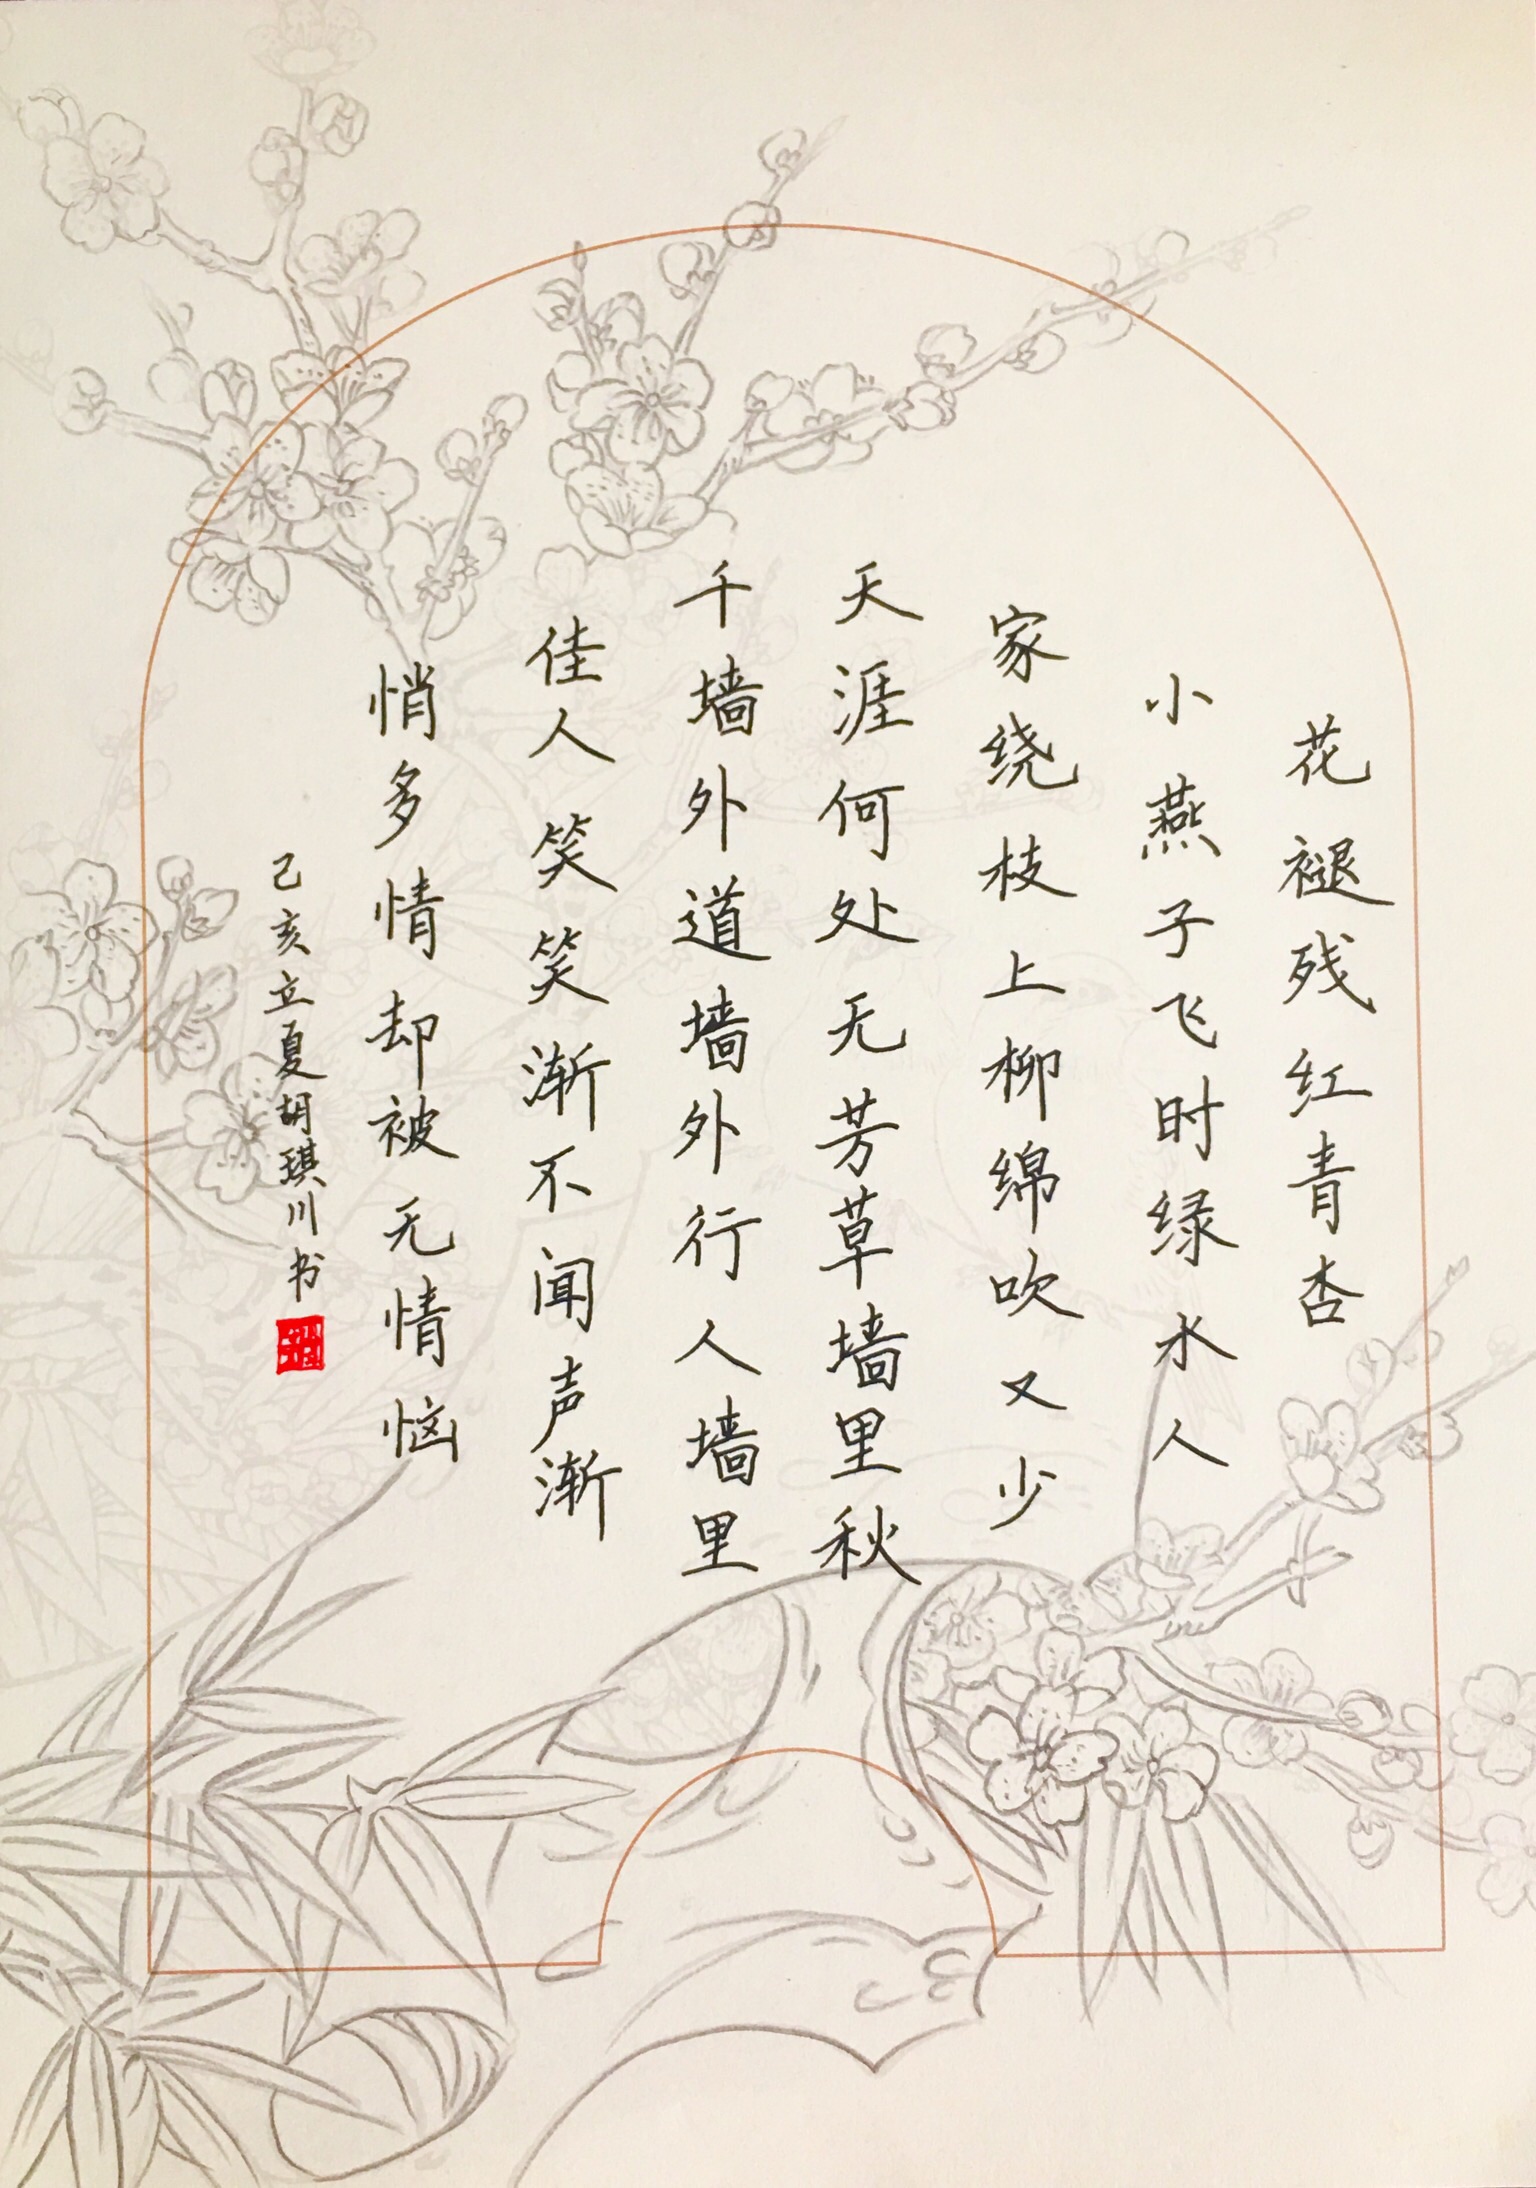 花褪残红青杏
小燕子飞时绿水人
家绕枝上柳绵吹又少
天涯何处无芳草墙里秋
千墙外道墙外行人墙里
佳人笑笑渐不闻声渐
悄多情却被无情恼
己亥立夏胡琪川书